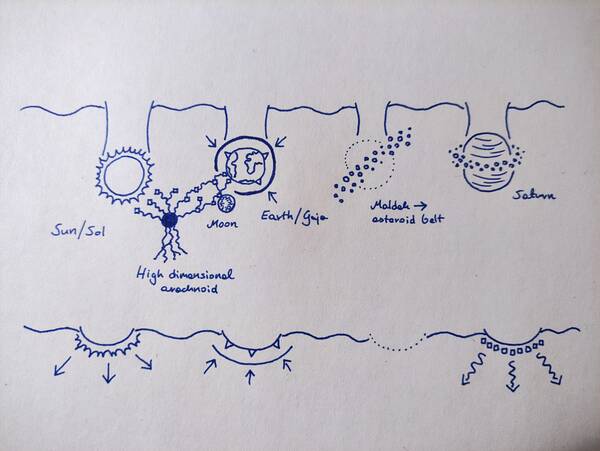 Sun/Sol
High dimensional
arachnoid
Moon
Earth/Gaia
Maldek →
asteroid belt
Saturn